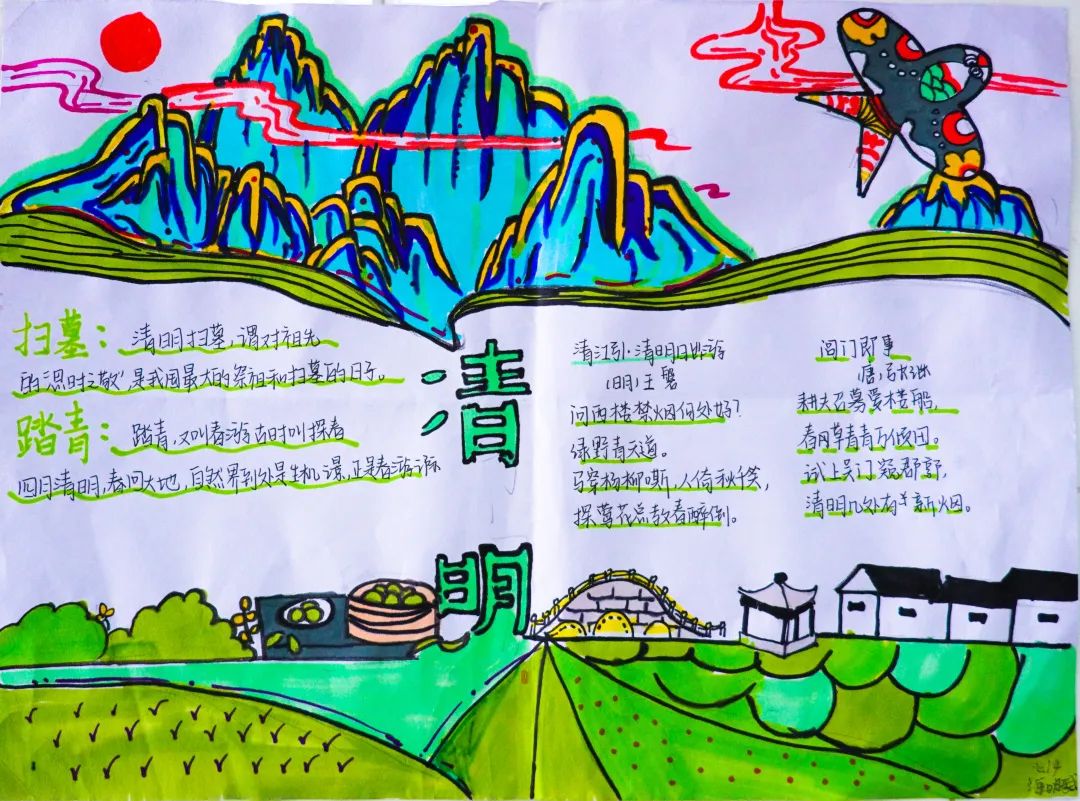 扫墓：清明扫墓，谓对祖先
的“思时之敬”是我国最大的祭祖和扫墓的日子。
踏青：踏青，又叫春游古时叫探春
四月清明，春回大地，自然界到处是生机
正是春游
清明
清江引·清明日出游
（明）王磐
问西楼禁烟何处好？
绿野青天道。
马穿杨柳嘶，人倚秋千笑，
探莺花总教春醉倒。
阊门即事
唐
耕夫召募爱楼船，
春风草青青万倾田。
试上吴门窥郡郭，
清明几处有新烟。